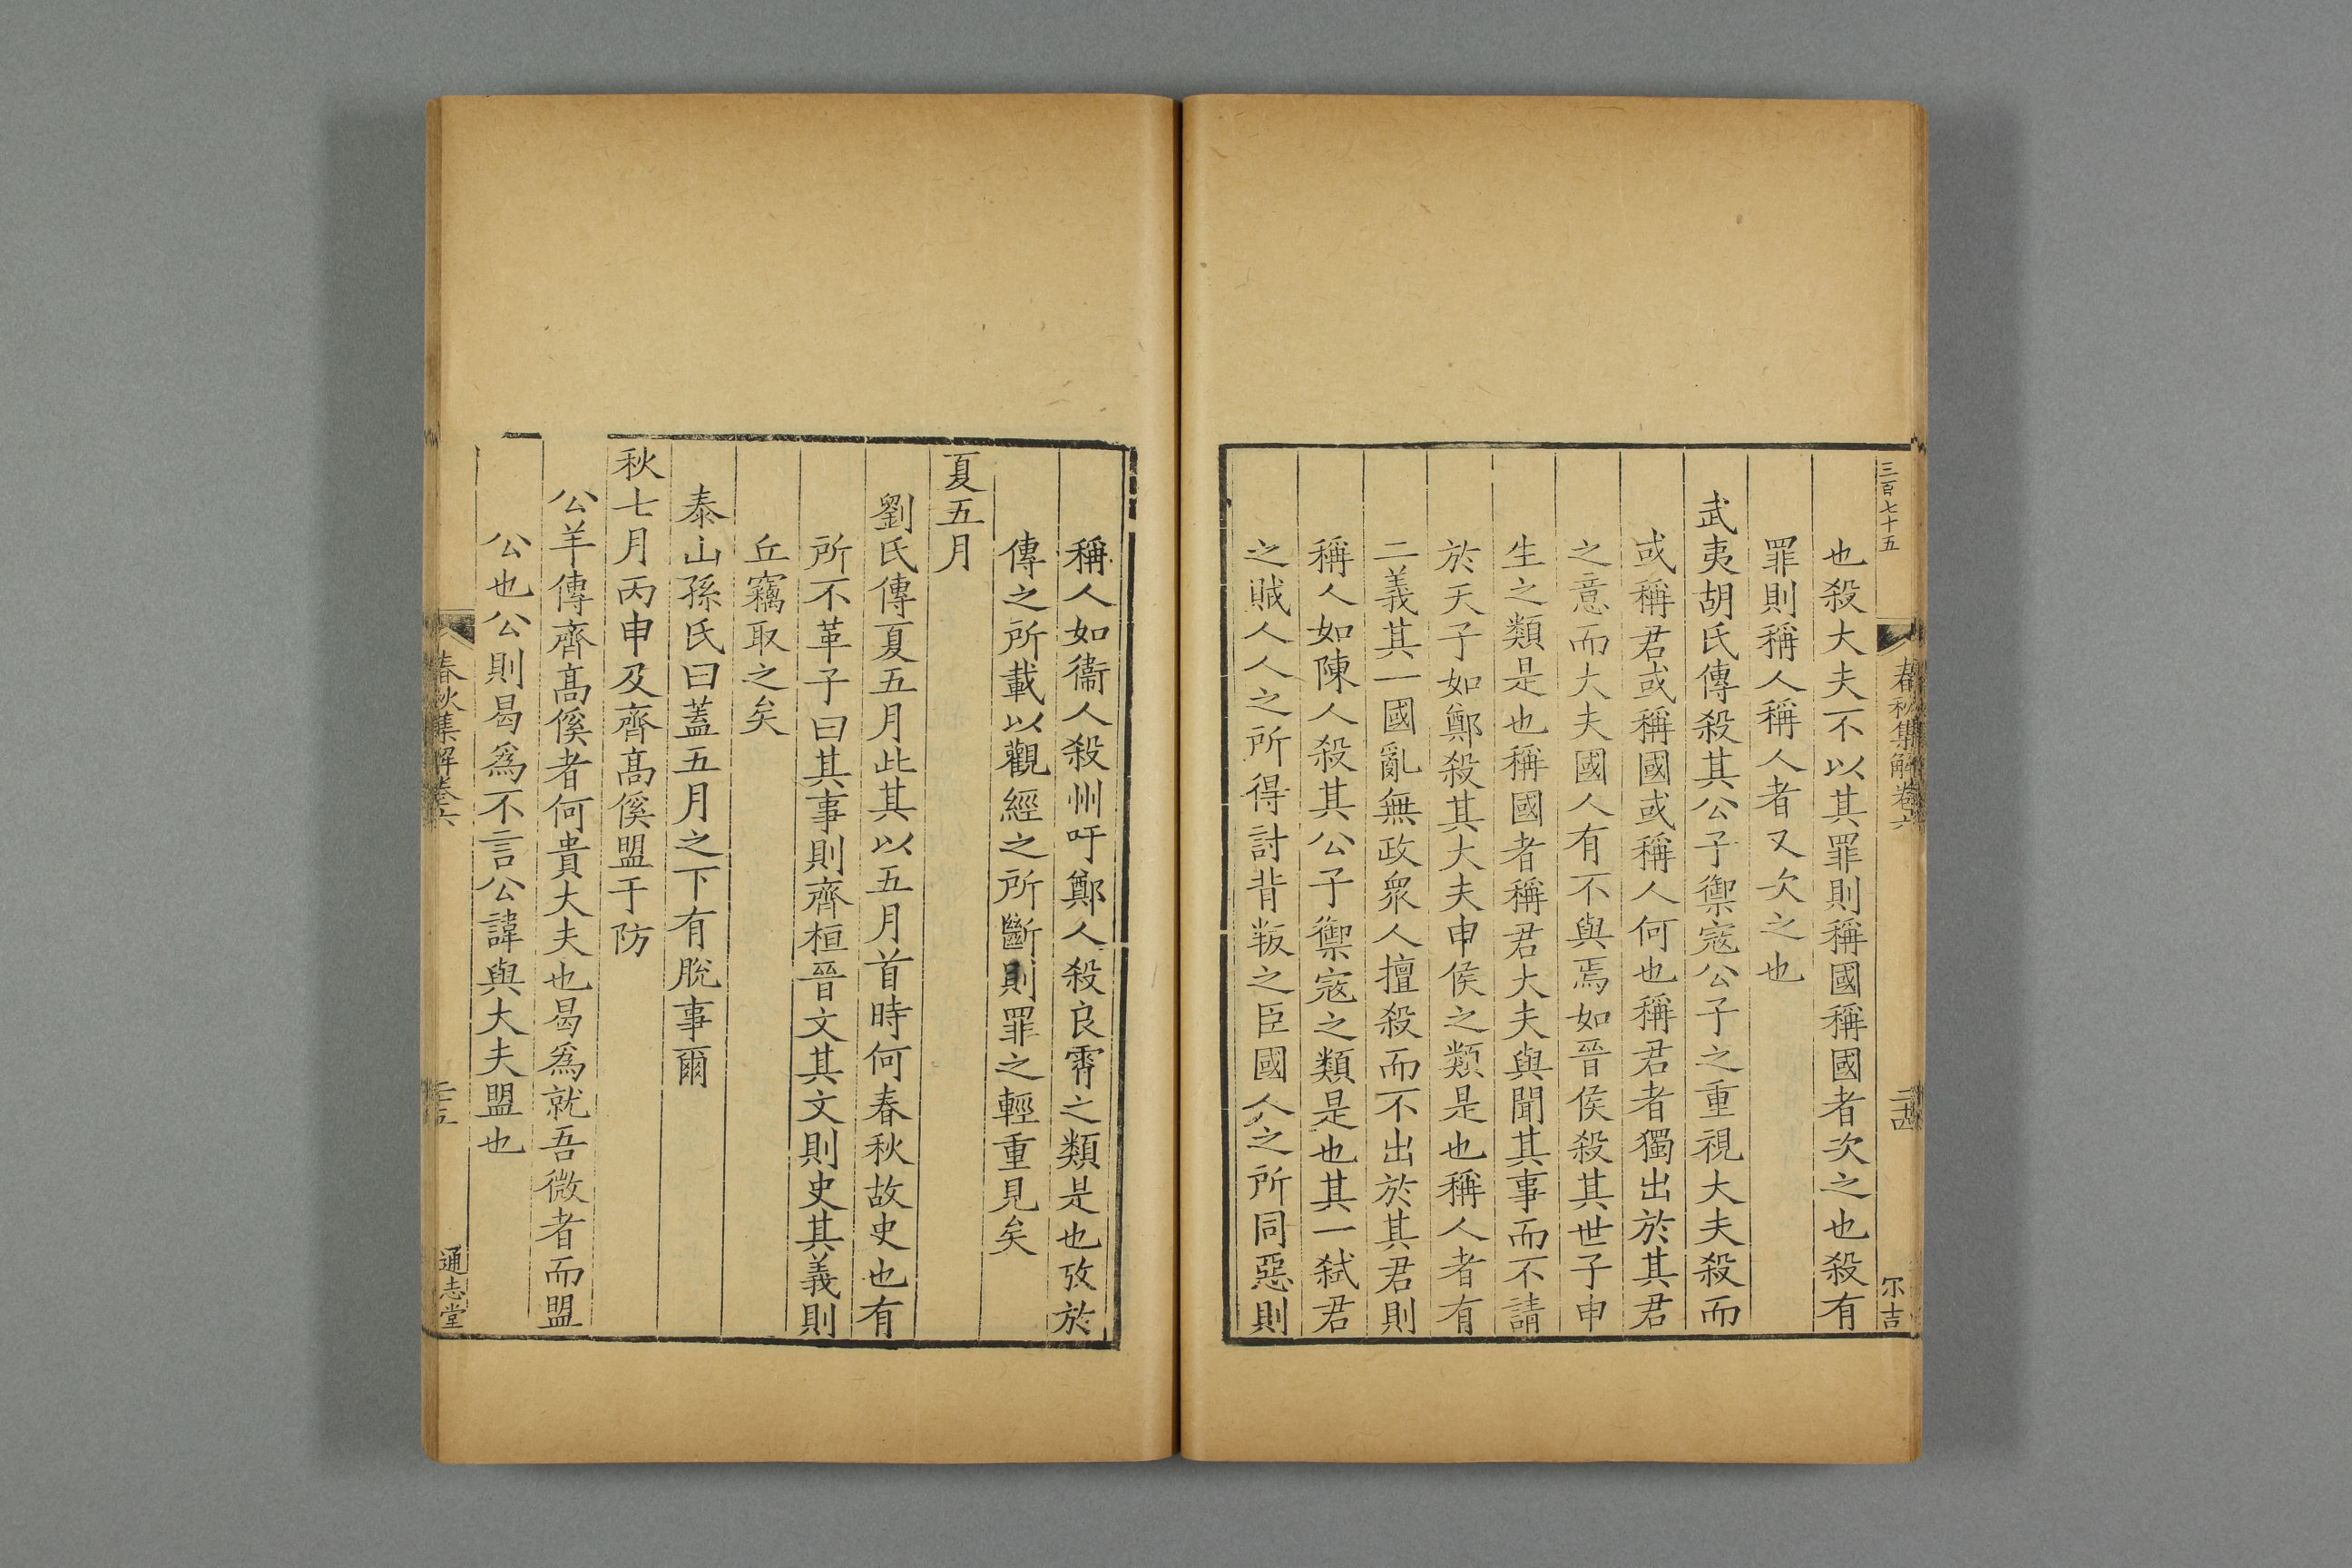 三百七十五
春秋集解卷六
二十四
尔吉
也殺大夫不以其罪則稱國稱國者次之也殺有
罪則稱人稱人者又次之也
武夷胡氏傳殺其公子禦寇公子之重視大夫殺而
或稱君或稱國或稱人何也稱君者獨出於其君
之意而大夫國人有不與焉如晉侯殺其世子申
生之類是也稱國者稱君大夫與聞其事而不請
於天子如鄭殺其大夫申侯之類是也稱人者有
二義其一國亂無政衆人擅殺而不出於其君則
稱人如陳人殺其公子禦寇之類是也其一弑君
之賊人人之所得討背叛之臣國人之所同惡則
稱人如衞人殺州吁鄭人殺良霄之類是也攷於
傳之所載以觀經之所斷則罪之輕重見矣
夏五月
劉氏傳夏五月此其以五月首時何春秋故史也有
所不革子曰其事則齊桓晉文其文則史其義則
丘竊取之矣
泰山孫氏曰蓋五月之下有脫事爾
秋七月丙申及齊高傒盟于防
公羊傳齊高傒者何貴大夫也曷爲就吾微者而盟
公也公則曷爲不言公諱與大夫盟也
春秋集解卷六
二十五
通志堂